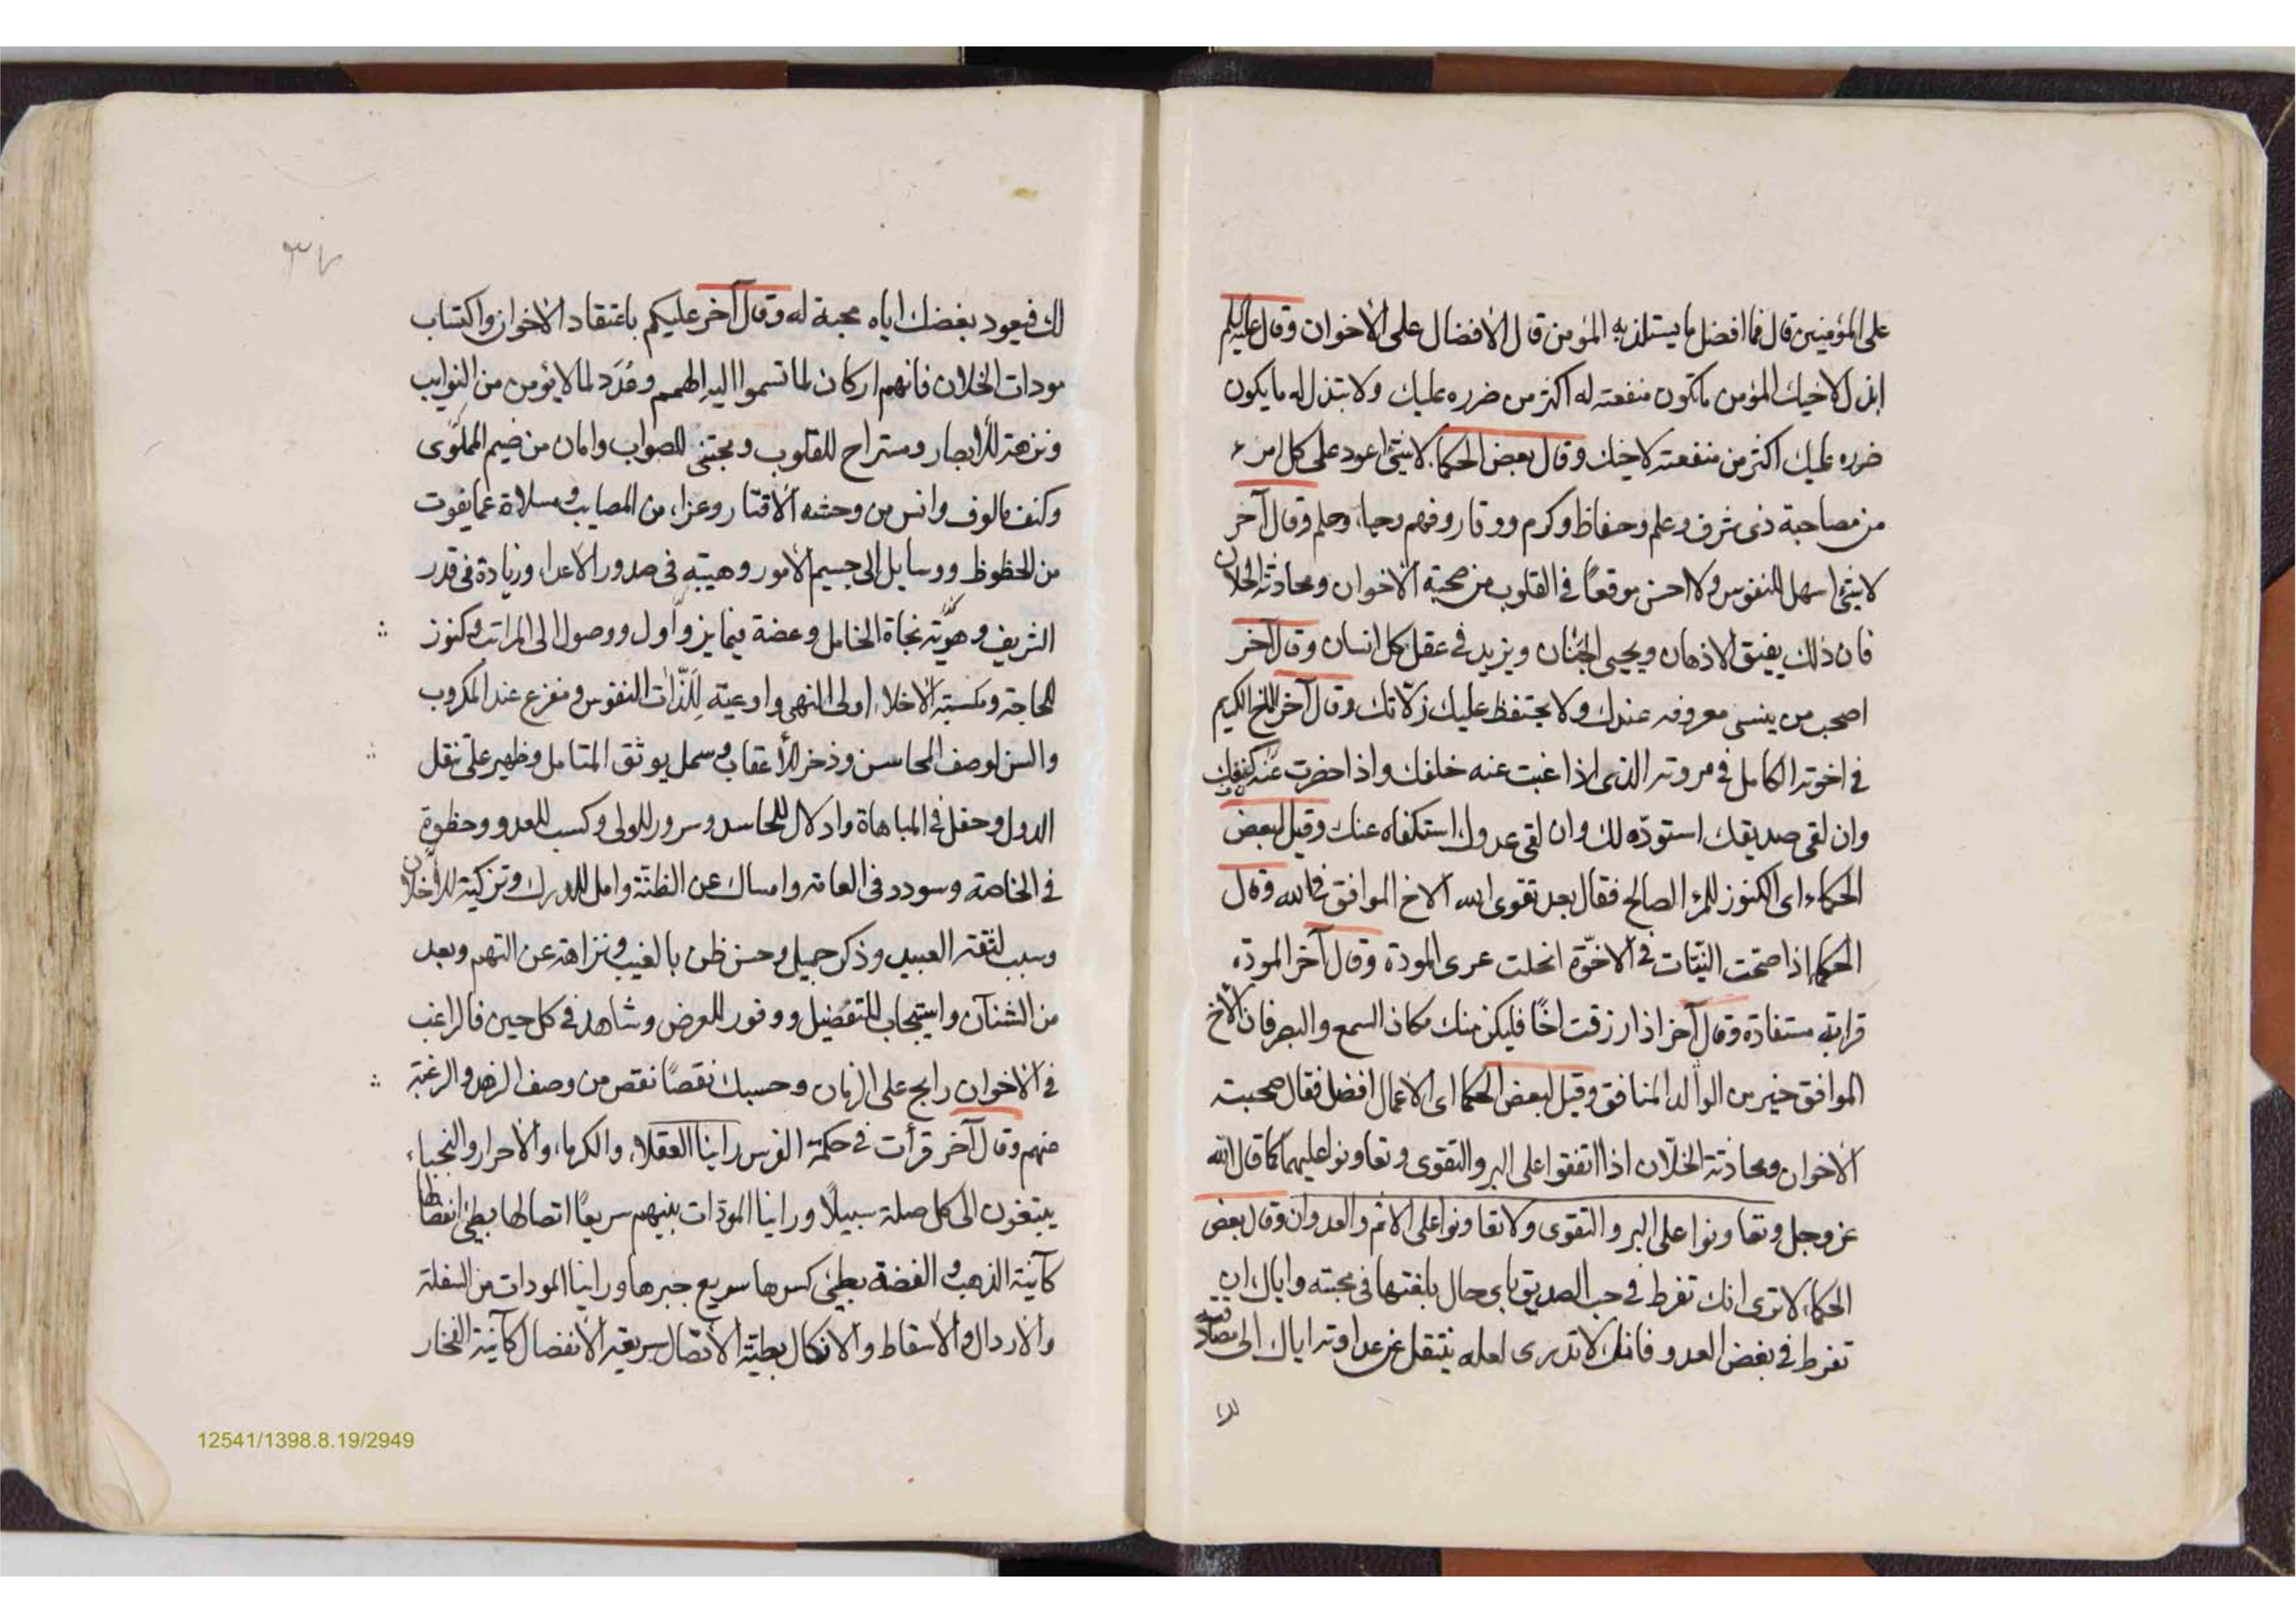 على المؤمنين قال فما افضل ما يستلذ به المؤمن قال الأفضال على الأخوان وقال عليه السلم
ابذل لاخيك المؤمن ما تكون منفعته له اكثر من ضرره عليك ولا تبذل له ما يكون
ضرره عليك اكثر من منفعته لاخيك وقال بعض الحكما لا شئ اعود على كل امرء
من مصاحبة ذى شرف وعلم وحفاظ وكرم ووقار وفهم وحياء وحلم وقال آخر
لا شئ اسهل للنفوس ولا احسن موقعًا في القلوب من صحبة الاخوان ومحادثة الخلان
فان ذلك يفيق الاذهان ويحيى الجنان ويزيد في عقل كل انسان وقال آخر
اصحب من ينسى معروفه عندك ولا يحتفظ عليك زلّاتك وقال آخر للاخ الكريم
في اخوته الكامل في مروته الذى اذا غبت عنه خلفك واذا حضرت عنده كنفك
وان لقى صديقك استودّه لك وان لقى عدوك استكفاه عنك وقيل لبعض
الحكماء اى الكنوز للمرء الصالح فقال بعد تقوى الله الاخ الموافق في الله وقال
الحكما اذا صحّت النيّات في الاخوّة انحلت عرى المودة وقال آخر المودّة
قرابة مستفادة وقال آخر اذا رزقت اخًا فليكن منك مكان السمع والبصر فان الأخ
الموافق خير من الوالد المنافق وقيل لبعض الحكما اى الاعمال افضل فقال صحبة
الاخوان ومحادثة الخلّان اذا اتفقوا على البر والتقوى وتعاونوا عليهما كما قال الله
عز وجل وتعاونوا على البر والتقوى ولا تعاونوا على الاثم والعدوان وقال بعض
الحكماء لا ترى انك تفرط في حب الصديق باى حال بلغتها في محبته واياك ان
تفرط في بغض العدو فانك لا تدرى لعله ينتقل عن عداوته اياك الى مصادقته
لك
٣٧
لك فيعود بغضك اياه محبة له وقال آخر عليكم باعتقاد الاخوان واكتساب
مودات الخلان فانهم اركان لما تسموا اليه الهمم وعُدَد لما لا يؤمن من النوايب
ونزهة للأبصار ومستراح للقلوب ومجتنى للصواب وامان من ضيم الملوى
وكنف مالوف وانس من وحشة الاقتار وعزاء من المصايب ومسلاة عما يفوت
من الحظوظ ووسايل الى جسيم الأمور وهيبة في صدور الاعداء وزيادة في قدر
الشريف وهوّته نجاة الخامل وعضة فيما يزواول ووصول الى المراتب وكنوز
للحاجة ومكسبة الاخلاء اولى النهى واوعية لِلَذّات النفوس ومفزع عند المكروب
والسن لوصف المحاسن وذخر للأعقاب وسمل يوثق المتامل وظهير على نقل
الدول وحفل في المباهاة وادلال للحاسد وسرور للولى وكسب للعدو وحظوة
في الخاصة وسودد فى العامة وامساك عن الظنّة وامل للدرك وتزكية للأخلاق
وسبب لثقة العبيد وذكر جميل وحسن ظن بالغيب ونزاهة عن التهم وبعد
من الشنآن واستيجاب للتفضيل ووفور للعرض وشاهد في كل حين فالراغب
في الاخوان رابح على الزمان وحسبك نقصًا نقص من وصف الزهد والرغبة
منهم وقال آخر قرأت في حكمة الفرس راينا العقلاء والكرماء والاحرار والنجباء
يبتغون الى كل صلة سبيلًا وراينا المودّات بينهم سريعًا اتصالها بطئ انفصالها
كآنية الذهب والفضة بطئ كسرها سريع جبرها وراينا المودات من السفلة
والارذال والاسقاط والانكال بطيئة الأتّصال سريعة الانفصال كآنية الفخار
12541/1398.8.19/2949